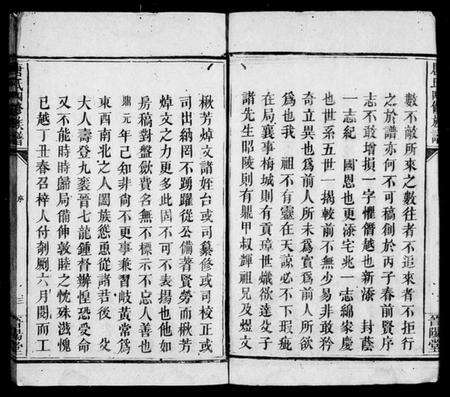 數不敵所來之數往者不追來者不拒行
之於譜亦何不可稿創於丙子春前賢序
志不敢增損一字懼僭越也新添 封蔭
一志紀 國恩也更添宅兆一志綿家慶
也世系五世一揭較前不無少易非敢矜
奇立異也為前人所未為實為前人所欲
為也我 祖不有靈在天諒必不下瑕疵
在局襄事梅城則有貢璋世孅欲達垒子
諸先生昭陵則有躬甲叔輝祖兄及煜文
楸芳焯文諸姪台或司纂修或司校正或
司出納罔不踴躍從公備著賢勞而楸芳
焯文之力更多此固不可不表揚也他如
房稿對盤歛費名無不標示不忘人善也
鼎元年己知非尚不更事兼習岐黃常爲
東西南北之人闔族慫恿從諸君後 父
大人壽登九袠晉七龍鍾督辦惶恐受命
又不能時時歸局備伸敦睦之忱殊滋愧
已越丁丑春召梓人付剞劂六月閱而工
唐氏
族譜
序
三
晉陽堂